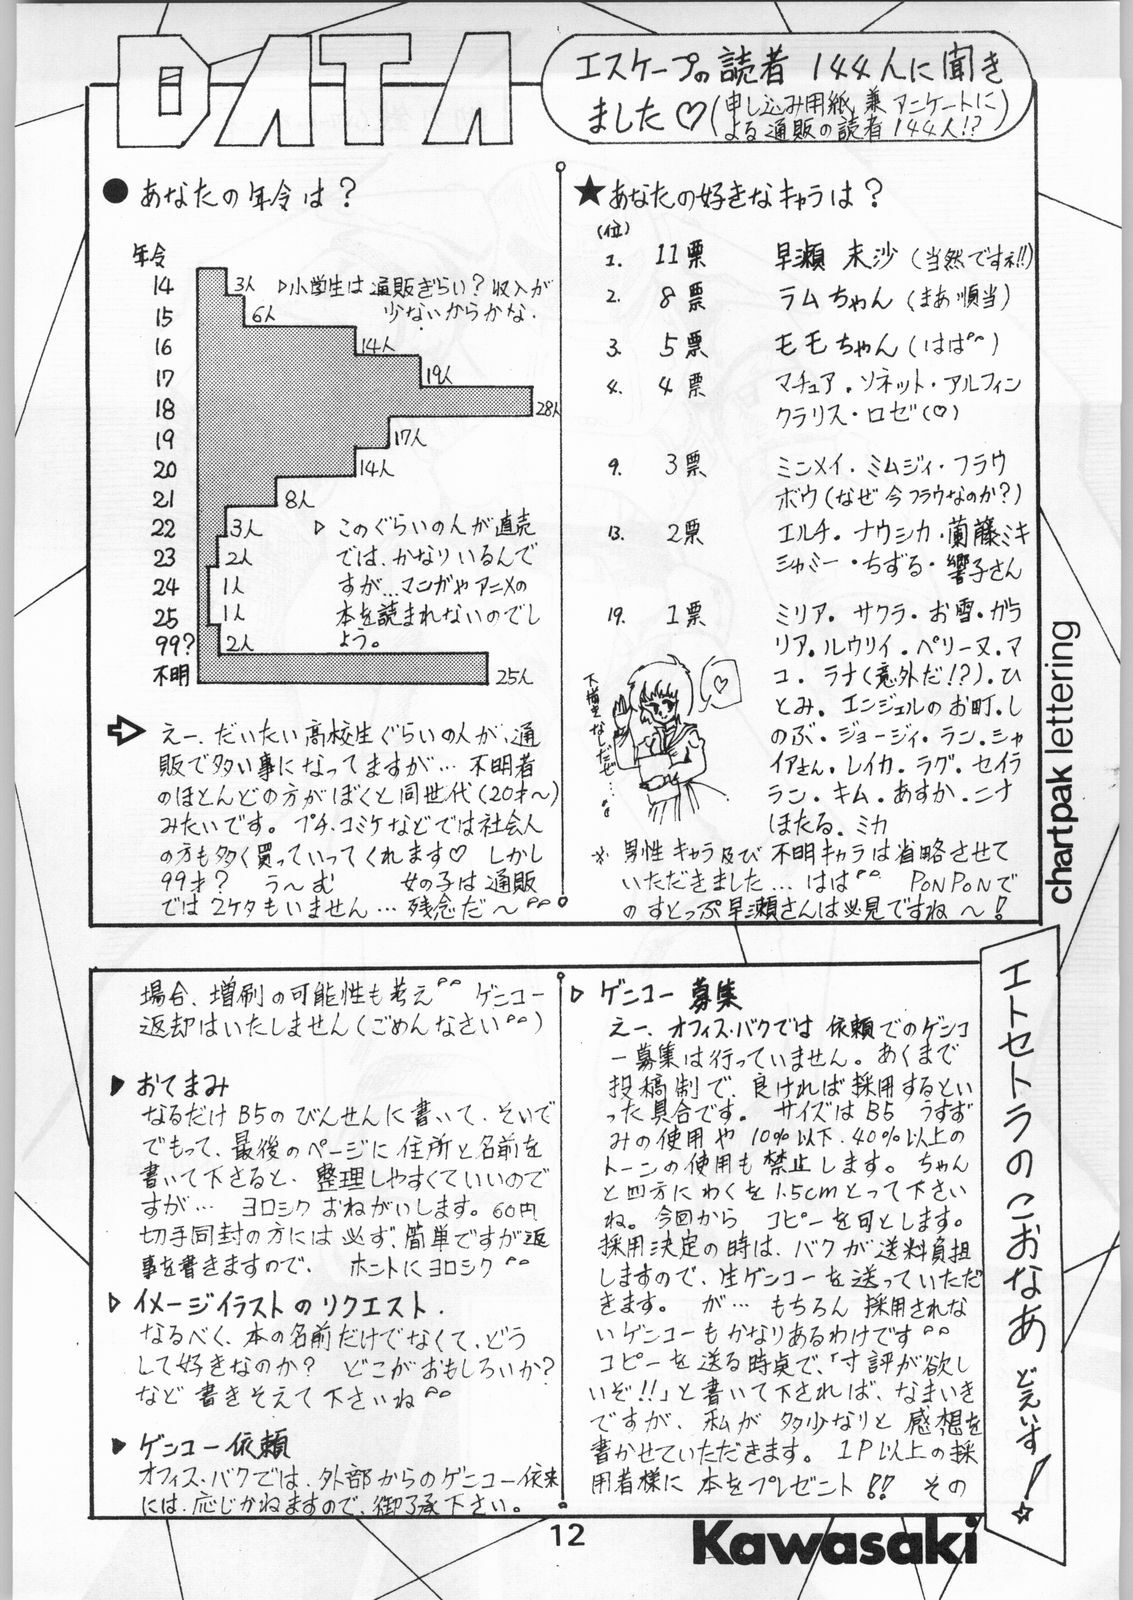 DATA
エスケープの読者 144人に聞き
ました♡(申し込み用紙兼アンケートに
よる通販の読者144人!?)
●あなたの年令は?
年令
14 3人
15 6人
16 14人
17 19人
18 28人
19 17人
20 14人
21 8人
22 3人
23 2人
24 1人
25 1人
99? 2人
不明 25人
▷小学生は通販ぎらい?収入が
少ないからかな.
▷このぐらいの人が直売
では、かなりいるんで
すが…マンガやアニメの
本を読まれないのでし
ょう。
⇨えー、だいたい高校生ぐらいの人が、通
販で多い事になってますが… 不明者
のほとんどの方がぼくと同世代(20才〜)
みたいです。 プチ・コミケなどでは社会人
の方も多く買っていってくれます♡ しかし
99才? う〜む 女の子は通販
では2ケタもいません…残念だ〜°°
★あなたの好きなキャラは?
(位)
1. 11票 早瀬 未沙(当然ですネ!!)
2. 8票 ラムちゃん(まあ順当)
3. 5票 モモちゃん(はは°°)
4. 4票 マチュア・ソネット・アルフィン
クラリス・ロゼ(♡)
9. 3票 ミンメイ・ミムジィ・フラウ
ボウ(なぜ今フラウなのか?)
13. 2票 エルチ・ナウシカ・蘭藤ミキ
シャミー・ちずる・響子さん
19. 1票 ミリア・サクラ・お雪・ガラ
リア・ルウリイ・ペリーヌ・マ
コ・ラナ(意外だ!?)・ひ
とみ・エンジェルのお町・し
のぶ・ジョージィ・ラン・シャ
イアさん・レイカ・ラグ・セイラ
ラン・キム・あすか・ニナ
ほたる・ミカ
下描きなしだぜ…
♡
※男性キャラ及び不明キャラは省略させて
いただきました…はは°° PONPONで
のすとっぷ早瀬さんは必見ですね〜!
chartpak lettering
場合、増刷の可能性も考え°° ゲンコー
返却はいたしません(ごめんなさい°°)
▶おてまみ
なるだけB5のびんせんに書いて、そいで
でもって、最後のページに住所と名前を
書いて下さると、整理しやすくていいので
すが… ヨロシクおねがいします。60円
切手同封の方には必ず、簡単ですが返
事を書きますので、 ホントにヨロシク°°
▷イメージイラストのリクエスト.
なるべく、本の名前だけでなくて、どう
して好きなのか? どこがおもしろいか?
など書きそえて下さいね°°
▶ゲンコー依頼
オフィス・バクでは、外部からのゲンコー依来
には、応じかねますので、御了承下さい。
▷ゲンコー募集
えー、オフィス・バクでは依頼でのゲンコ
ー募集は行っていません。あくまで
投稿制で、良ければ採用するとい
った具合です。 サイズはB5 うすず
みの使用や10%以下.40%以上の
トーンの使用も禁止します。ちゃん
と四方にわくを1.5cmとって下さい
ね。今回から コピーを可とします。
採用決定の時は、バクが送料負担
しますので、生ゲンコーを送っていただ
きます。 が… もちろん採用されな
いゲンコーもかなりあるわけです°°
コピーを送る時点で、「寸評が欲し
いぞ!!」と書いて下されば、なまいき
ですが、私が多少なりと感想を
書かせていただきます。1P以上の採
用者様に本をプレゼント!! その
エトセトラのこおなあ どえいす!☆
12
Kawasaki